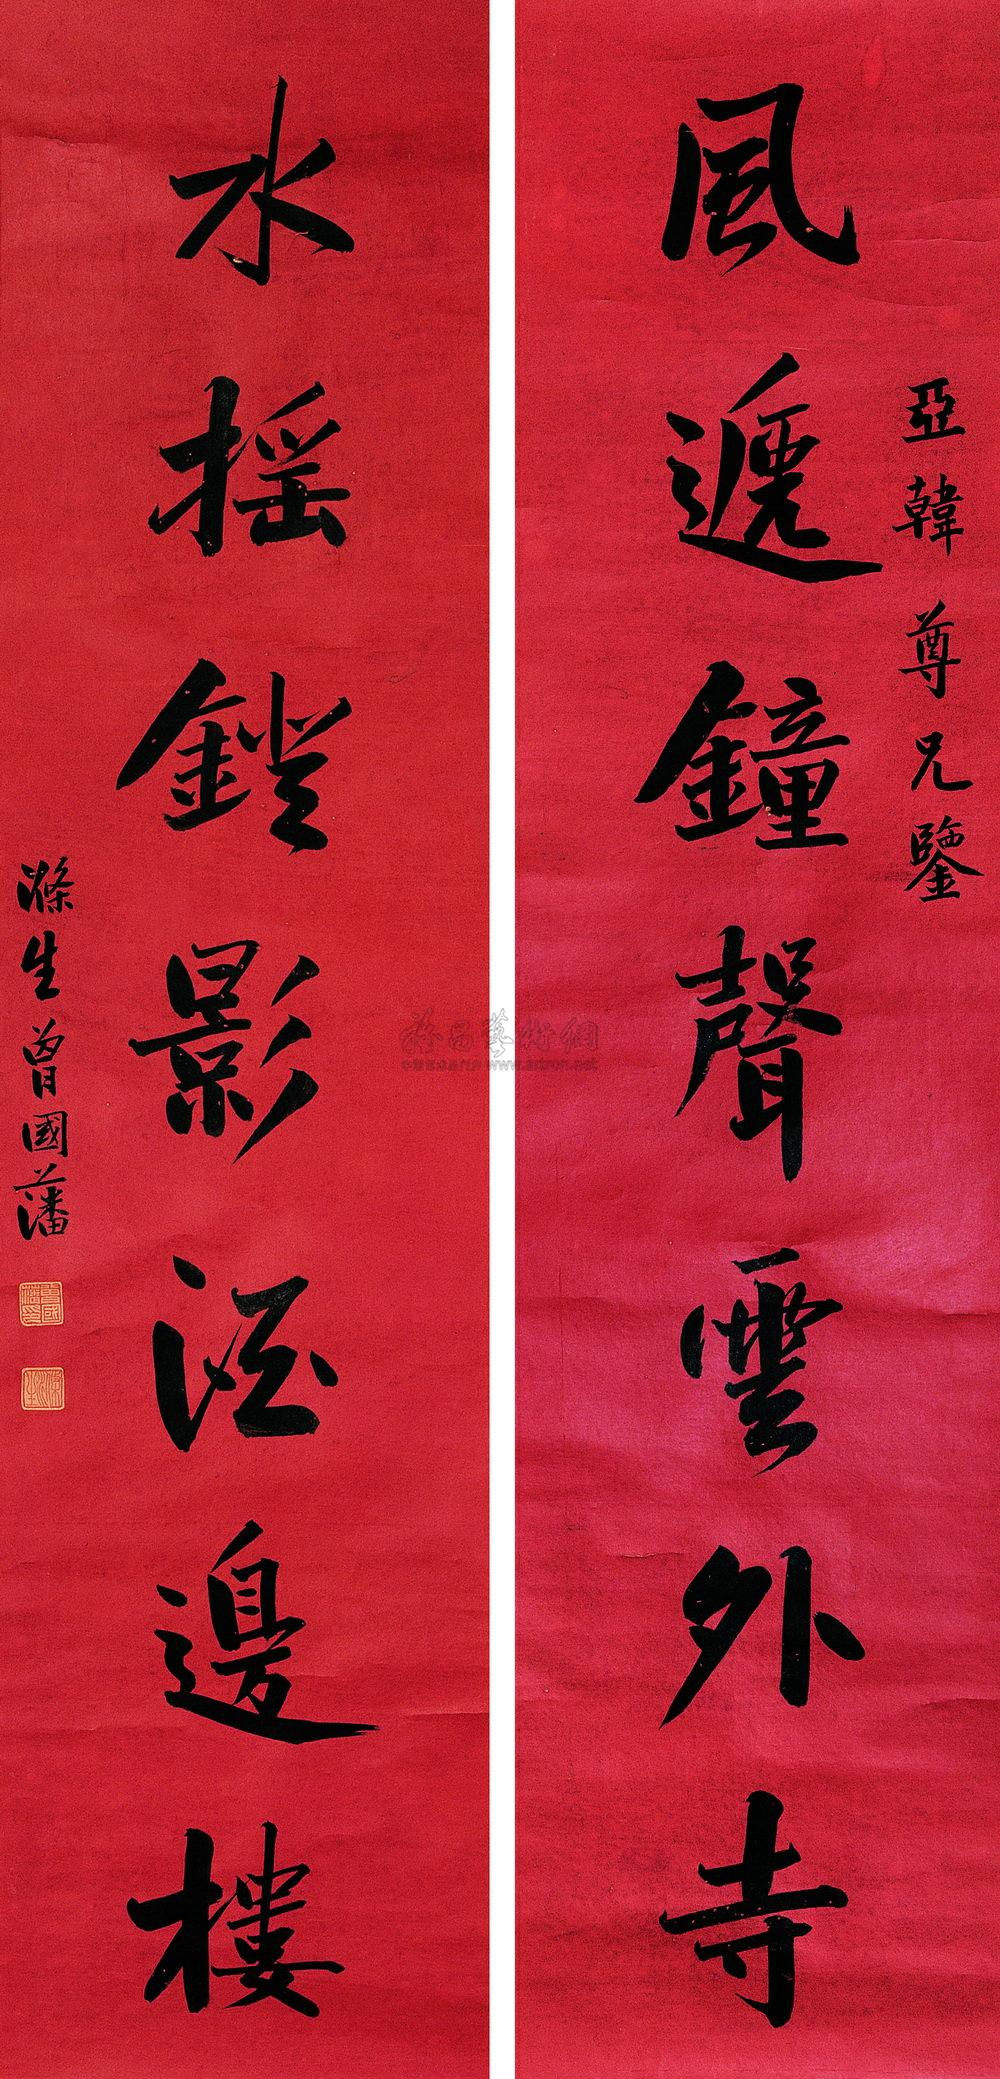 風遞鐘聲雲外寺
亞韓尊兄鑒
水搖鐙影酒邊樓
滌生曾國藩
www.artron.net